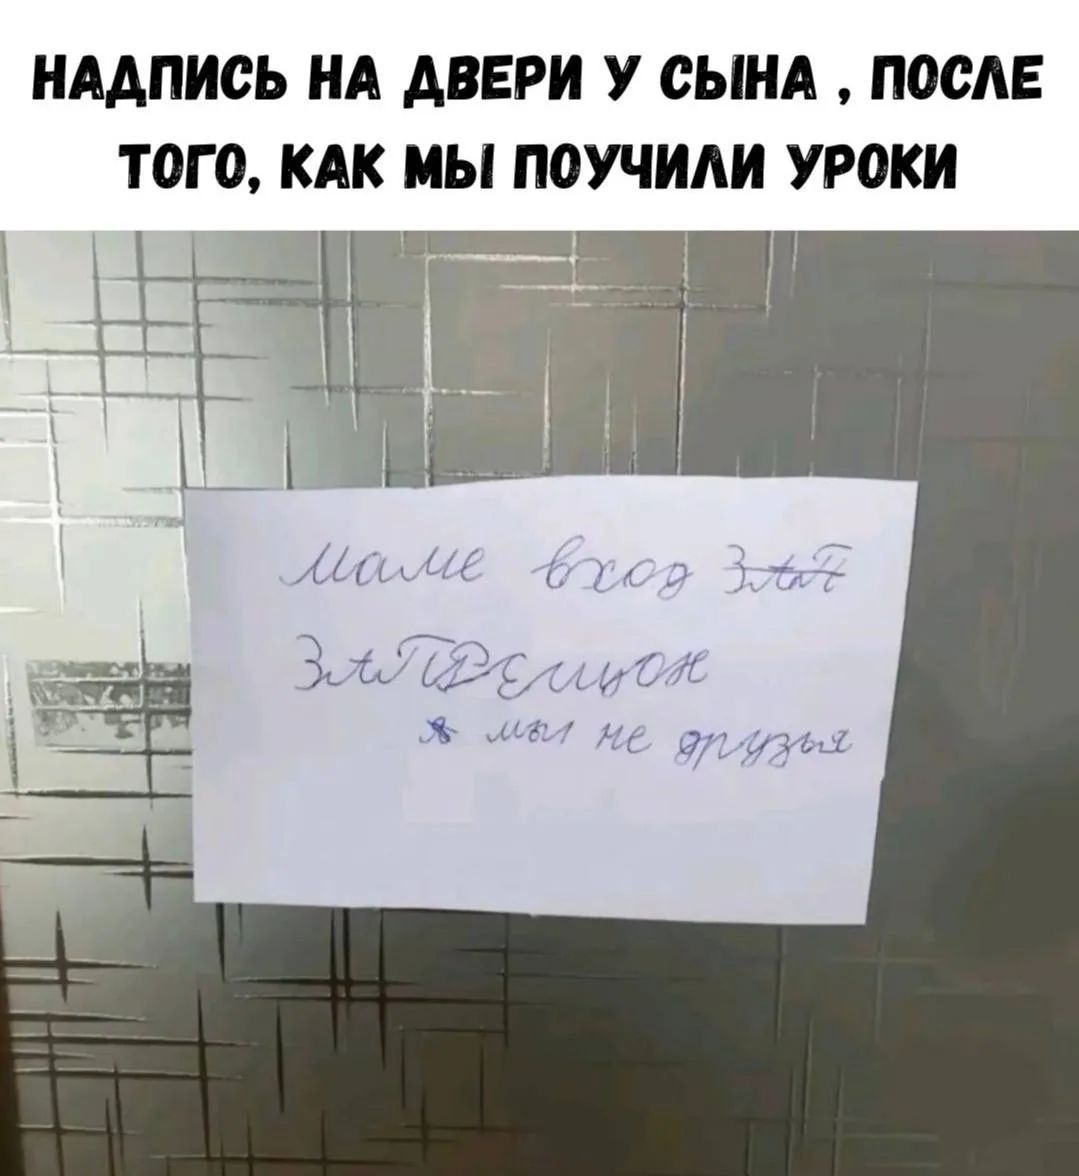 НАДПИСЬ НА ДВЕРИ У СЫНА , ПОСЛЕ
ТОГО, КАК МЫ ПОУЧИЛИ УРОКИ
маме вход ЗАП
ЗАПРЕЩОН
я мы не друзья